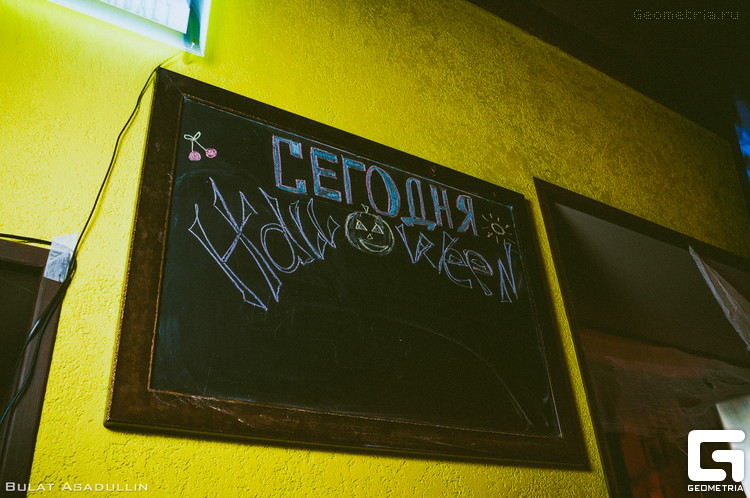 Geometria.ru
СЕГОДНЯ
Halloween
BULAT ASADULLIN
GEOMETRIA